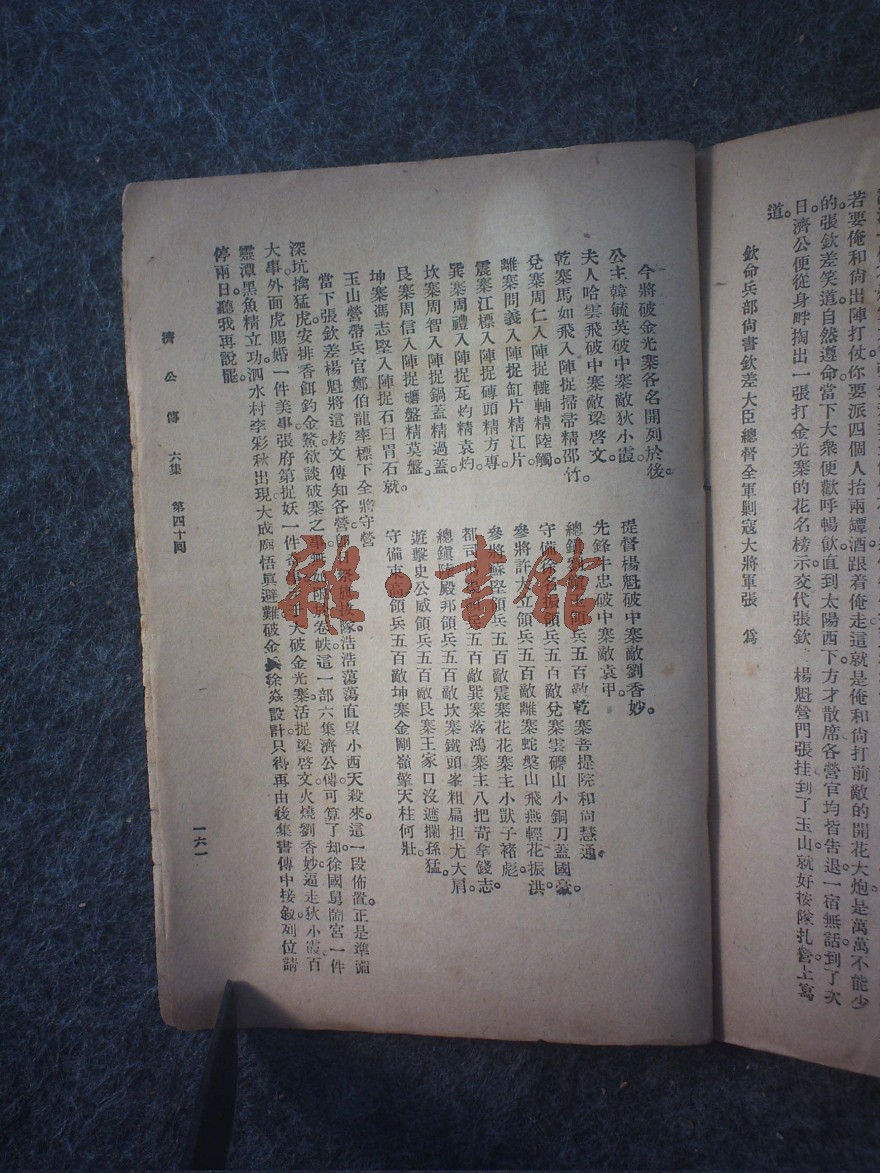 若要俺和尙出陣打仗。你要派四個人抬兩罈酒跟着俺走這就是俺和尙打前敵的開花大炮是萬萬不能少
的。張欽差笑道自然遵命當下大衆便歡呼暢飮。直到太陽西下方才散席各營官均皆告退一宿無話到了次
日。濟公便從身畔掏出一張打金光寨的花名榜示交代張欽、楊魁營門張挂到了玉山。就好按隊扎營上寫
道。
欽命兵部尙書欽差大臣總督全軍剿寇大將軍張 爲
今將破金光寨各名開列於後。
公主韓毓英破中寨敵狄小霞。
夫人哈雲飛破中寨敵梁啓文。
乾寨馬如飛入陣捉掃帚精邵竹。
兌寨周仁入陣捉軸精陸觸。
離寨周義入陣捉缸片精江片。
震寨江標入陣捉磚頭精方專。
巽寨周禮入陣捉瓦灼精袁灼。
坎寨周智入陣捉鍋蓋精過蓋。
艮寨周信入陣捉礳盤精莫盤。
坤寨馮志堅入陣捉石臼胃石就。
提督楊魁破中寨敵劉香妙。
先鋒牛忠破中寨敵袁甲。
總鎭領兵五百敵乾寨菩提院和尙慧通。
守備領兵五百敵兌寨雲礳山小銅刀蓋國豪。
參將許大立領兵五百敵離寨蛇盤山飛燕輕花振洪
參將蘇堅領兵五百敵震寨花花寨主小獃子褚彪。
都司領兵五百敵巽寨落鴻寨主八把苛拿錢志。
總鎭陸殿邦領兵五百敵坎寨鐵頭峯粗扁担尤大肩。
遊擊史公威領兵五百敵艮寨王家口沒遮攔孫猛。
守備東領兵五百敵坤寨金剛嶺擎天柱何壯。
玉山營帶兵官鄭伯龍率標下全將守營
當下張欽差楊魁將這榜文傳知各營。隊浩浩蕩蕩直望小西天殺來。這一段佈置。正是準備
深坑擒猛虎。安排香餌釣金鰲欲談破寨之事卷帙這一部六集濟公傳可算了却。徐國舅鬧宮一件
大事。外面虎賜婚一件美事。張府第捉妖一件大破金光寨。活捉梁啓文火燒劉香妙。逼走狄小霞。百
靈潭黑魚精立功。泗水村李彩秋出現大成廟悟眞避難破金徐焱設計只得再由後集書傳中接敍列位請
停兩日。聽我再說罷。
濟公傳 六集 第四十回
一六一
雅·書館